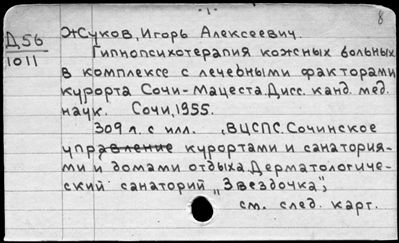 -1-
8
Д56
1011
Жуков, Игорь Алексеевич.
Гипнопсихотерапия кожных больных
в комплексе с лечебными факторами
курорта Сочи-Мацеста. Дисс. канд. мед.
наук. Сочи, 1955.
309 л. с илл. , ВЦСПС. Сочинское
управление курортами и санатория-
ми и домами отдыха. Дерматологиче-
ский санаторий "Звездочка",
см. след. карт.